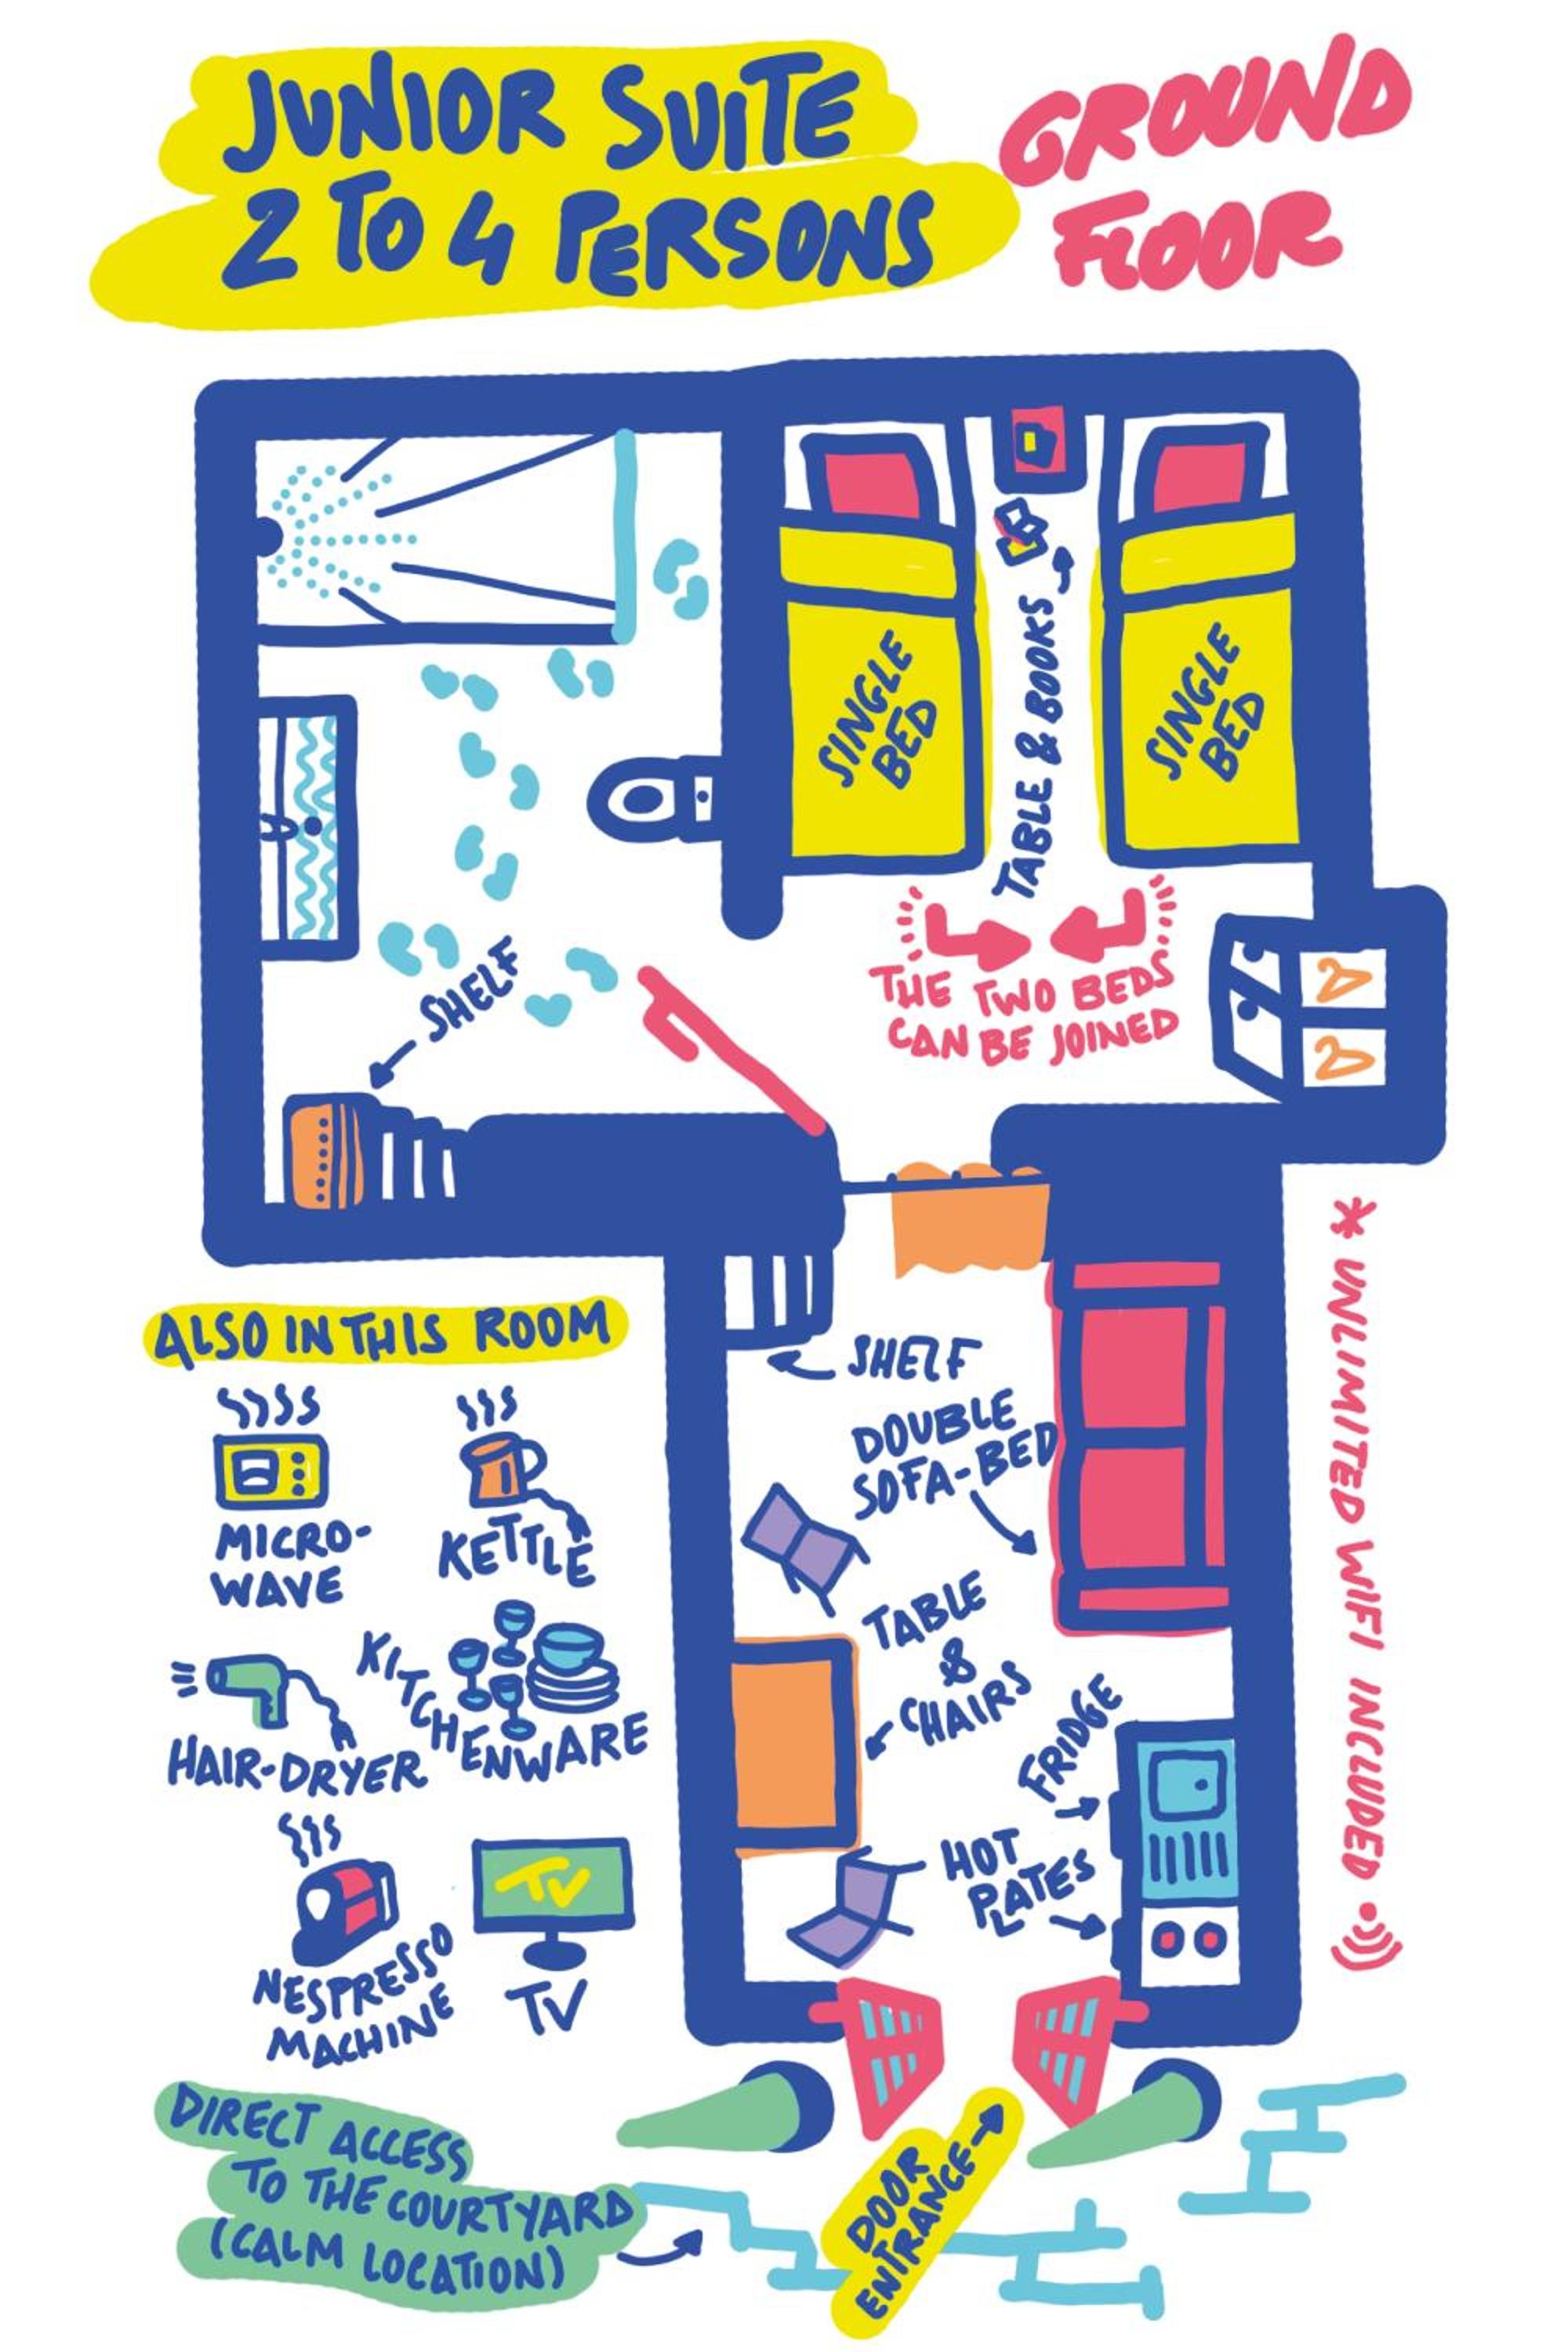 JUNIOR SUITE
2 TO 4 PERSONS
GROUND
FLOOR
SINGLE
BED
TABLE & BOOKS
SINGLE
BED
THE TWO BEDS
CAN BE JOINED
SHELF
* UNLIMITED WIFI INCLUDED
ALSO IN THIS ROOM
MICRO-
WAVE
KETTLE
HAIR-DRYER
KITCHENWARE
NESPRESSO
MACHINE
TV
TV
SHELF
DOUBLE
SOFA-BED
TABLE
&
CHAIRS
FRIDGE
HOT
PLATES
DIRECT ACCESS
TO THE COURTYARD
(CALM LOCATION)
DOOR
ENTRANCE